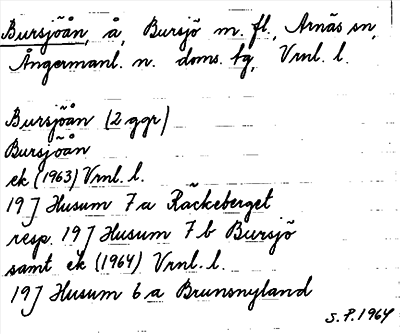 Bursjöån, å, Bursjö m. fl., Arnäs sn,
Ångermanl. n. doms. fg, Vrnl. l.
Bursjöån (2 ggr)
Bursjöån
ek (1963) Vrnl. l.
19 J Husum 7 a Räckeberget
resp. 19 J Husum 7 b Bursjö
samt ek (1964) Vrnl. l.
19 J Husum 6 a Brunsnyland
S. P. 1964